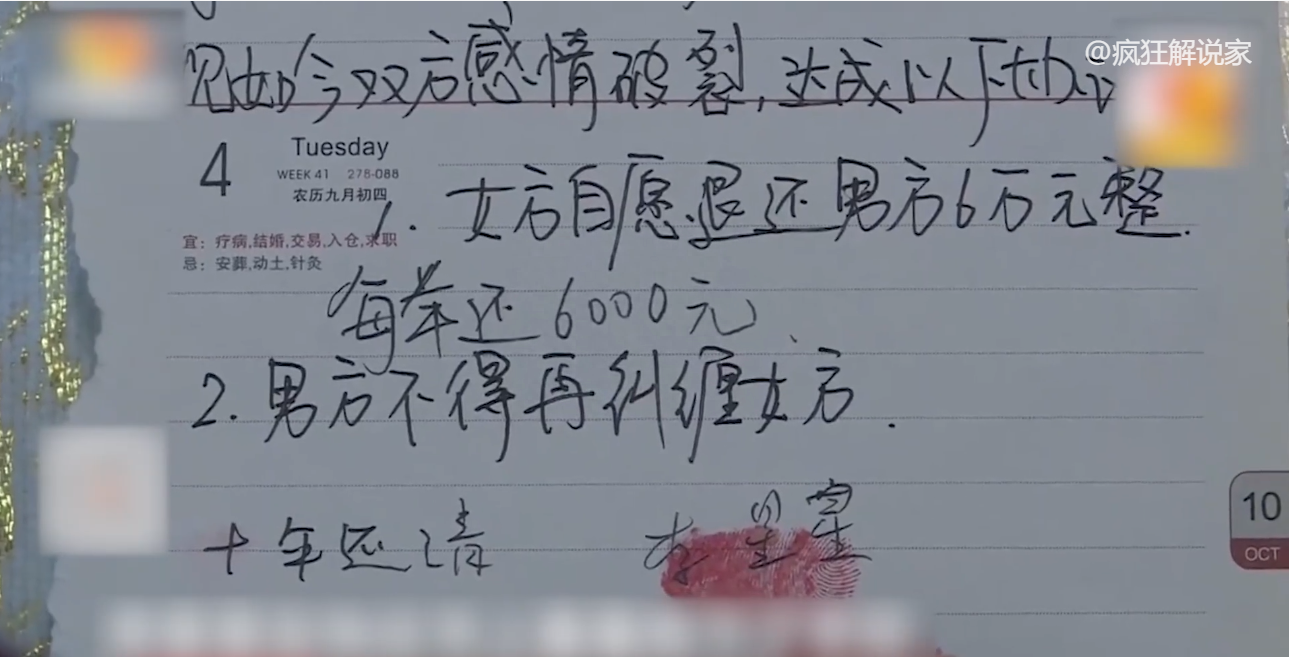 @疯狂解说家
如今双方感情破裂,达成以下
4
Tuesday
WEEK 41 278-088
农历九月初四
宜: 疗病,结婚,交易,入仓,求职
忌: 安葬,动土,针灸
1. 女方自愿退还男方6万元整.
每年还6000元
2. 男方不得再纠缠女方.
十年还清
10
OCT